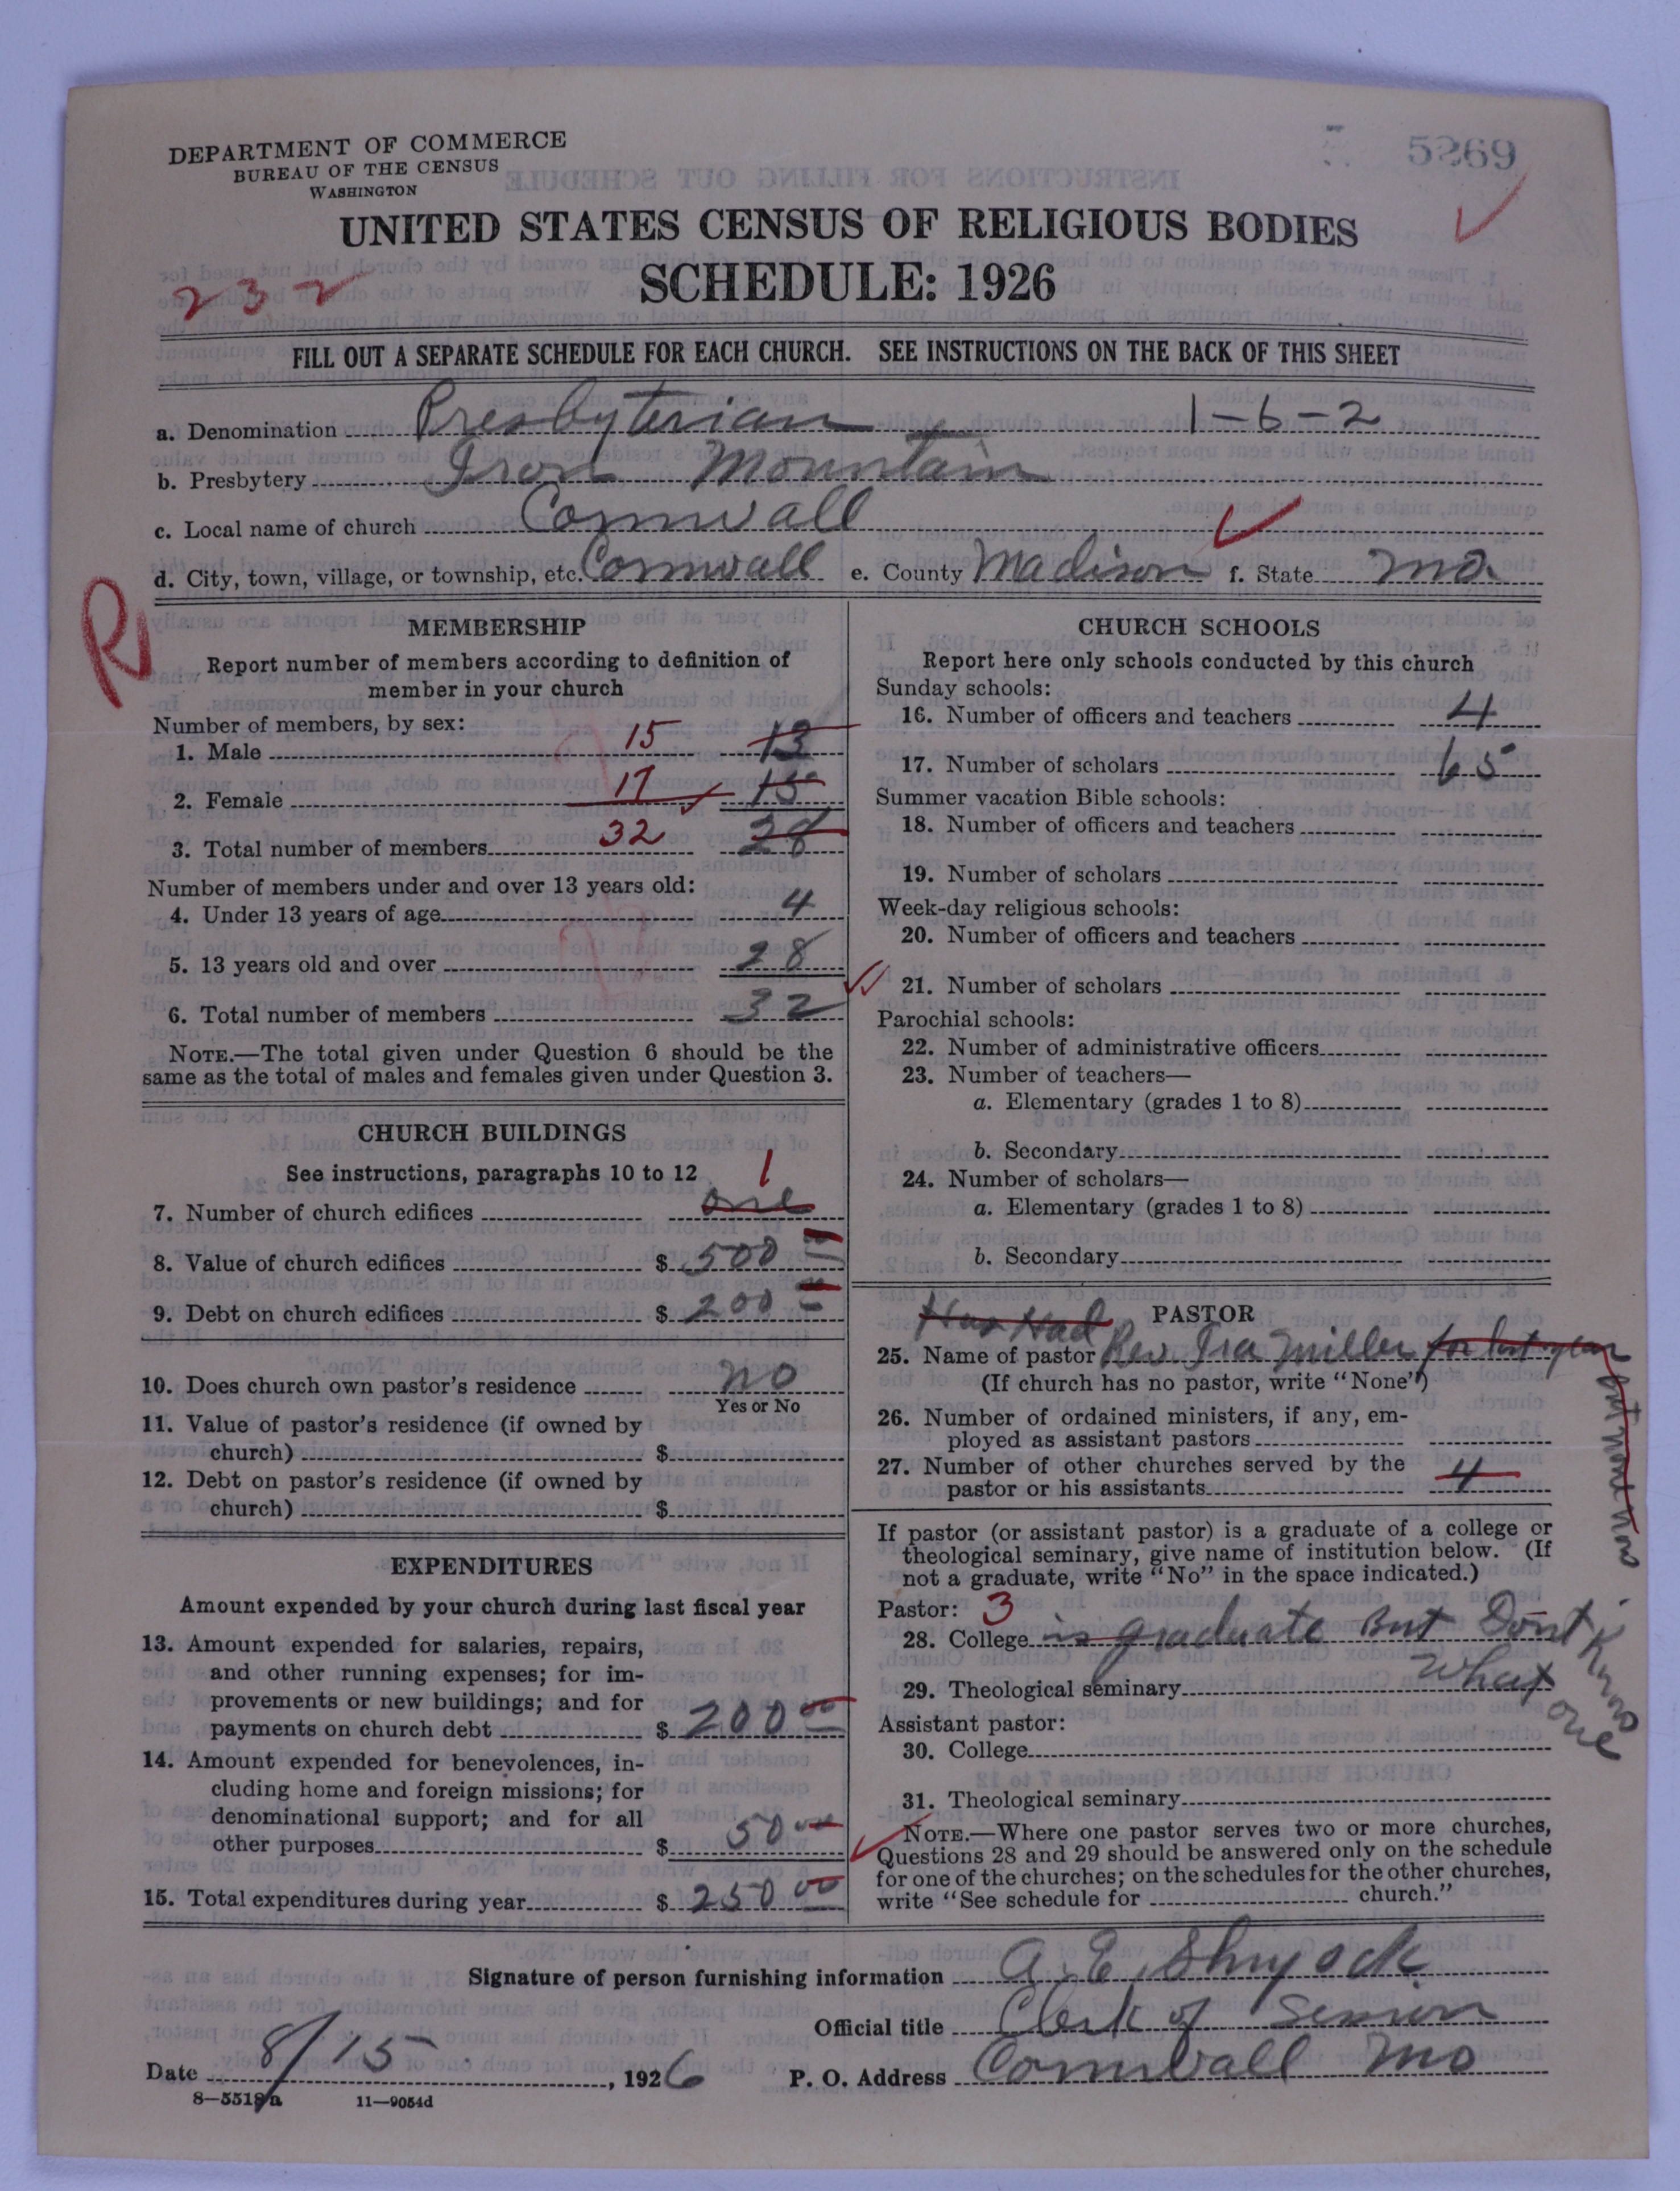 DEPARTMENT OF COMMERCE
BUREAU OF THE CENSUS
WASHINGTON
5269
UNITED STATES CENSUS OF RELIGIOUS BODIES
SCHEDULE: 1926
232
FILL OUT A SEPARATE SCHEDULE FOR EACH CHURCH. SEE INSTRUCTIONS ON THE BACK OF THIS SHEET
a. Denomination Presbyterian 1-6-2
b. Presbytery Iron Mountain
c. Local name of church Cornwall
d. City, town, village, or township, etc. Cornwall e. County Madison f. State Mo.
R
MEMBERSHIP
Report number of members according to definition of
member in your church
Number of members, by sex:
1. Male 15 13
2. Female 17 15
3. Total number of members 32 28
Number of members under and over 13 years old:
4. Under 13 years of age 4
5. 13 years old and over 28
6. Total number of members 32
NOTE.—The total given under Question 6 should be the
same as the total of males and females given under Question 3.
CHURCH BUILDINGS
See instructions, paragraphs 10 to 12
1
7. Number of church edifices one
8. Value of church edifices $ 500 00
9. Debt on church edifices $ 200 00
10. Does church own pastor's residence No
Yes or No
11. Value of pastor's residence (if owned by
church) $
12. Debt on pastor's residence (if owned by
church) $
EXPENDITURES
Amount expended by your church during last fiscal year
13. Amount expended for salaries, repairs,
and other running expenses; for im-
provements or new buildings; and for
payments on church debt $ 200 00
14. Amount expended for benevolences, in-
cluding home and foreign missions; for
denominational support; and for all
other purposes $ 50 00
15. Total expenditures during year $ 250 00
CHURCH SCHOOLS
Report here only schools conducted by this church
Sunday schools:
16. Number of officers and teachers 4
17. Number of scholars 65
Summer vacation Bible schools:
18. Number of officers and teachers
19. Number of scholars
Week-day religious schools:
20. Number of officers and teachers
21. Number of scholars
Parochial schools:
22. Number of administrative officers
23. Number of teachers—
a. Elementary (grades 1 to 8)
b. Secondary
24. Number of scholars—
a. Elementary (grades 1 to 8)
b. Secondary
PASTOR
Has Had
25. Name of pastor Rev. Ira Miller for last year
but none now
(If church has no pastor, write "None")
26. Number of ordained ministers, if any, em-
ployed as assistant pastors
27. Number of other churches served by the
pastor or his assistants 4
If pastor (or assistant pastor) is a graduate of a college or
theological seminary, give name of institution below. (If
not a graduate, write "No" in the space indicated.)
Pastor: 3
28. College is graduate But Dont Know
29. Theological seminary What one
Assistant pastor:
30. College
31. Theological seminary
NOTE.—Where one pastor serves two or more churches,
Questions 28 and 29 should be answered only on the schedule
for one of the churches; on the schedules for the other churches,
write "See schedule for church."
Signature of person furnishing information A. E. Shryock
Official title Clerk of Session
Date 8/15, 1926 P. O. Address Cornwall Mo
8—5518a 11—9054d